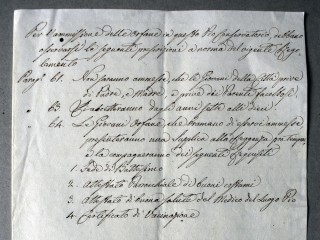 Per l'ammissione delle Orfane in questo Pio Conservatorio, si deve
osservare la seguente prescrizione a norma del vigente Rego-
lamento
Paragf. 61. Non saranno ammesse che le Giovani della Città prive
di Padre, e Madre, e prive di Parenti facoltosi.
63. dagli anni sette alli dieci.
64. Le Giovani Orfane che bramano di essere ammesse
presenteranno una Supplica alla Reggenza pro tempore
e la compagneranno dei seguenti Requisiti
1. Fede di Battesimo
2. Attestato Parrocchiale di buoni costumi
3. Attestato di buona salute del Medico del Luogo Pio
4. Certificato di Vaccinazione